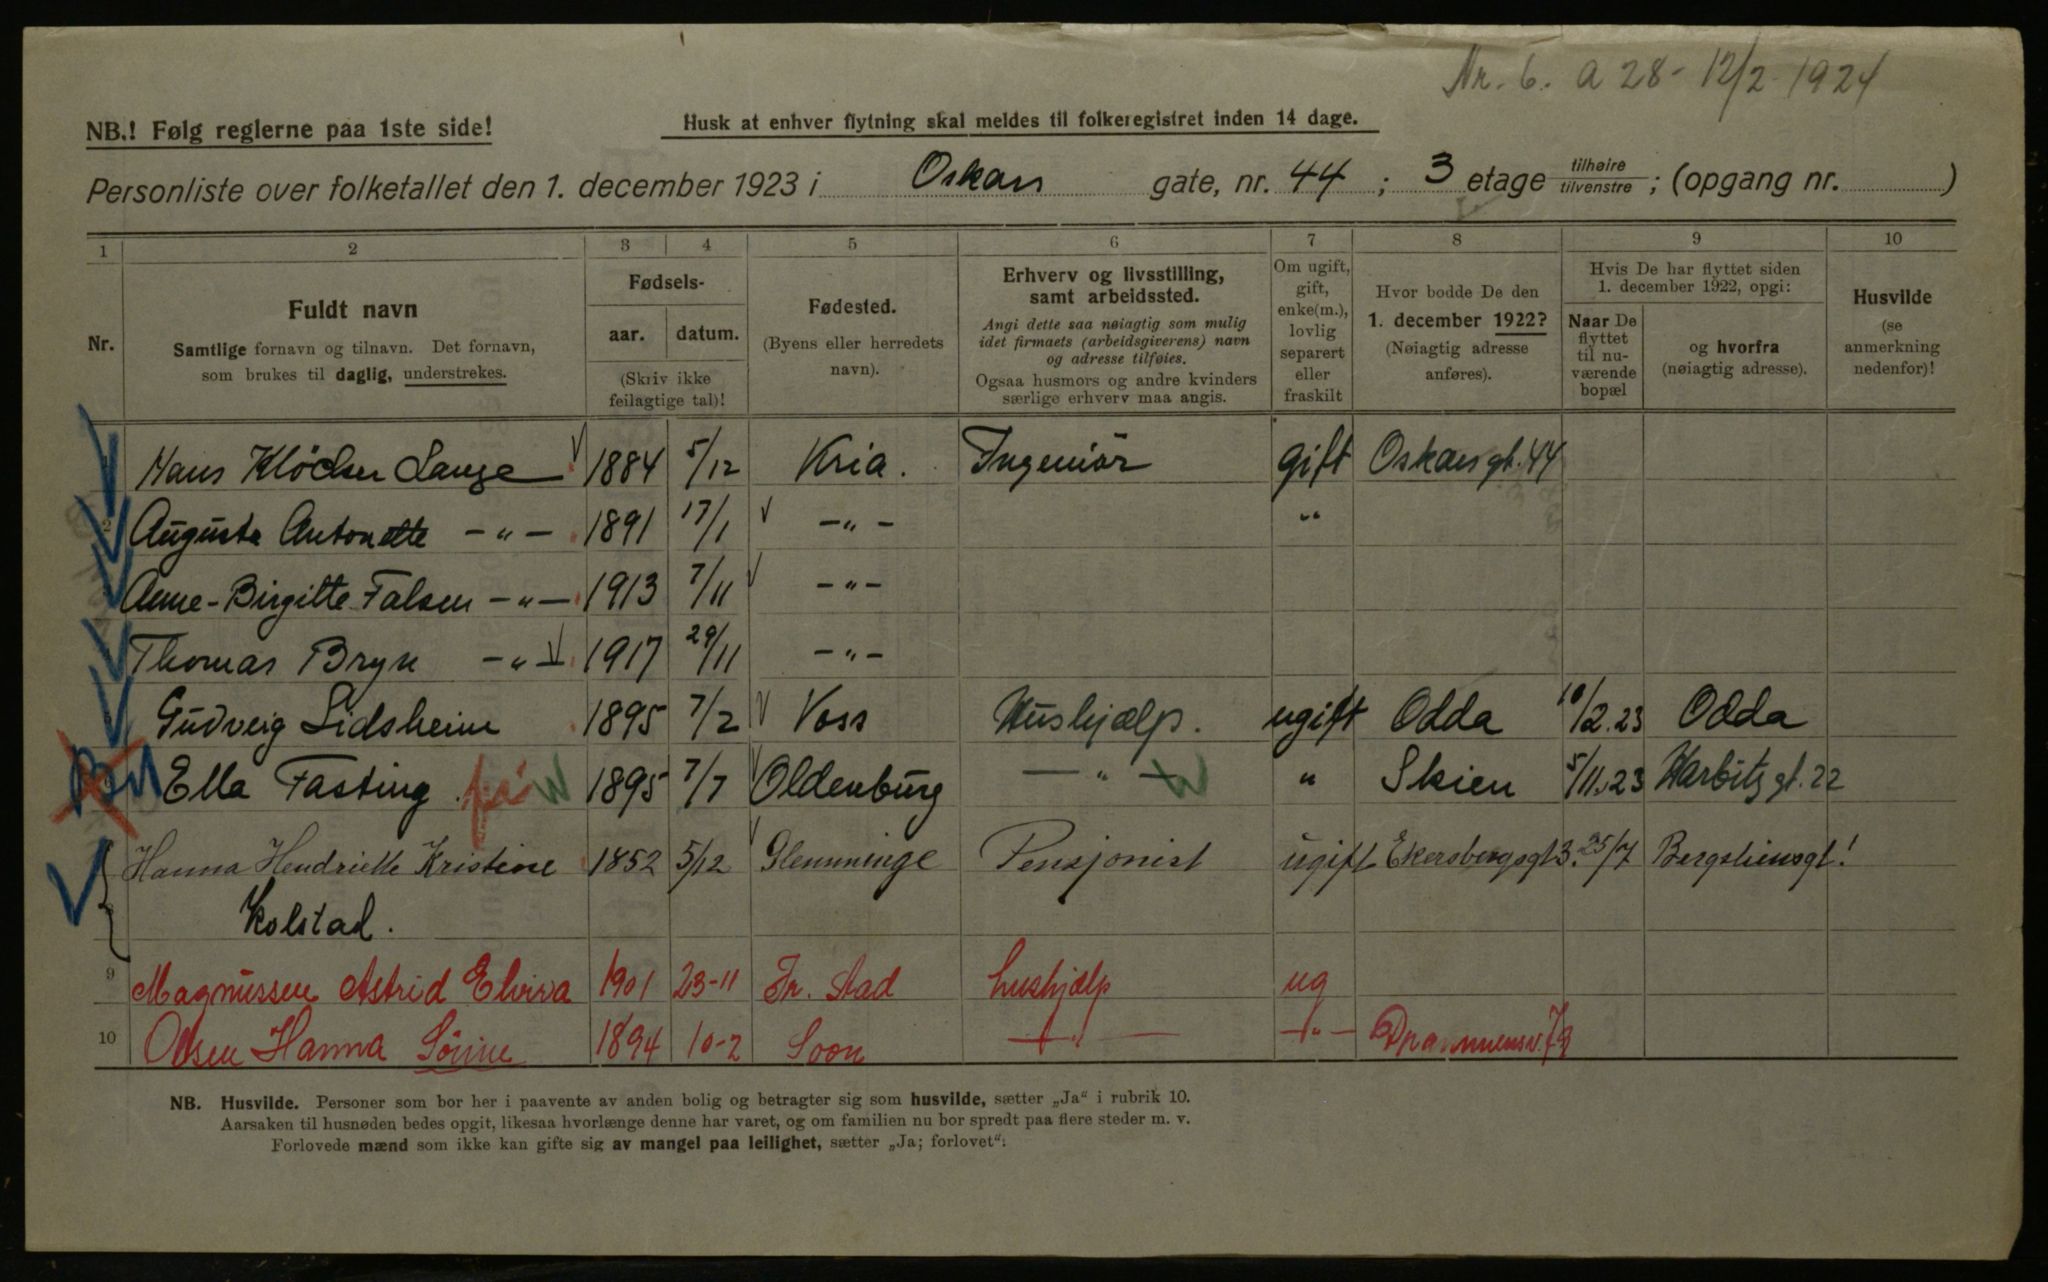 Nr. 6. a 28- 12/2 1924
NB.! Følg reglerne paa 1ste side!
Husk at enhver flytning skal meldes til folkeregistret inden 14 dage.
Personliste over folketallet den 1. december 1923 i Oskars gate, nr. 44 ; 3 etage tilhøire/tilvenstre ; (opgang nr. )
1 2 3 4 5 6 7 8 9 10
Nr.
Fuldt navn
Samtlige fornavn og tilnavn. Det fornavn,
som brukes til daglig, understrekes.
Fødsels-
aar. datum.
(Skriv ikke
feilagtige tal)!
Fødested.
(Byens eller herredets
navn).
Erhverv og livsstilling,
samt arbeidssted.
Angi dette saa nøiagtig som mulig
idet firmaets (arbeidsgiverens) navn
og adresse tilføies.
Ogsaa husmors og andre kvinders
særlige erhverv maa angis.
Om ugift,
gift,
enke(m.),
lovlig
separert
eller
fraskilt
Hvor bodde De den
1. december 1922?
(Nøiagtig adresse
anføres).
Hvis De har flyttet siden
1. december 1922, opgi:
Naar De
flyttet
til nu-
værende
bopæl
og hvorfra
(nøiagtig adresse).
Husvilde
(se
anmerkning
nedenfor)!
Hans Klöcker Lange 1884 5/12 Kria. Ingeniör gift Oskarsgt. 44
Augusta Antonette -„- 1891 17/1 -„- „
Anne-Birgitte Falsen -„- 1913 7/11 -„-
Thomas Bryn -„- 1917 29/11 -„-
Gudveig Lidsheim 1895 7/2 Voss Hushjælp. ugift Odda 10/2.23 Odda
Ella Fasting 1895 7/7 Oldenburg -„- „ Skien 5/11.23 Harbitzgt. 22
Hanna Hendriette Kristine 1852 5/12 Glemminge Pensjonist ugift Ekersbergsgt 3. 25/7 Bergsliensgt.
Kolstad.
9 Magnussen Astrid Elvira 1901 23-11 Fr. Stad hushjælp ug
10 Olsen Hanna Sörine 1894 10-2 Soon -„- -„- Drammensv. 79
NB. Husvilde. Personer som bor her i paavente av anden bolig og betragter sig som husvilde, sætter „Ja" i rubrik 10.
Aarsaken til husnøden bedes opgit, likesaa hvorlænge denne har varet, og om familien nu bor spredt paa flere steder m. v.
Forlovede mænd som ikke kan gifte sig av mangel paa leilighet, sætter „Ja; forlovet":